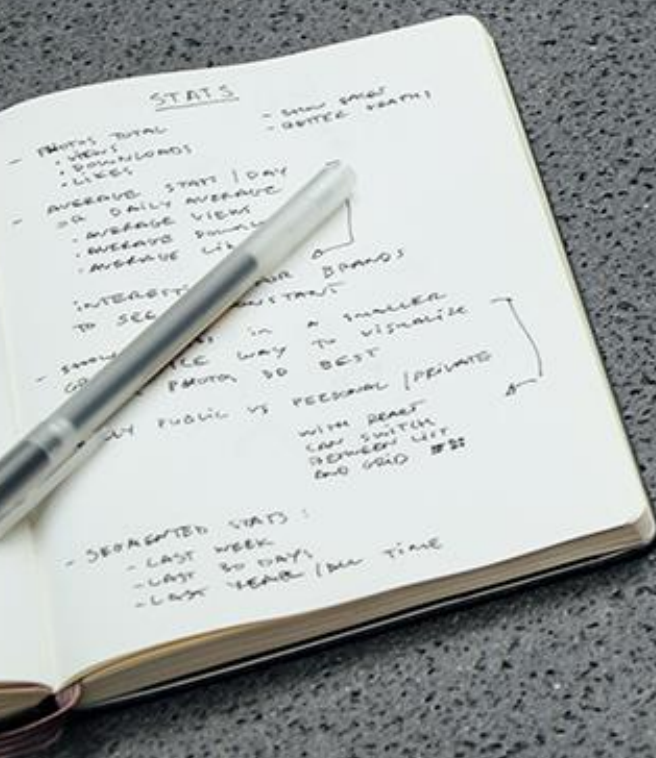 STATS
- PHOTOS TOTAL
• VIEWS
• DOWNLOADS
• LIKES
- SHOW
- BETTER GRAPHS
- AVERAGE STATS / DAY
OR DAILY AVERAGE
• AVERAGE VIEWS
• AVERAGE
• AVERAGE
BRANDS
TO SEE
- SHOW IN A SMALLER
WAY TO VISUALISE
PHOTOS DO BEST
PUBLIC VS PERSONAL / PRIVATE
WITH REACT
CAN SWITCH
BETWEEN LIST
AND GRID
- SEGMENTED STATS :
- LAST WEEK
- LAST 30 DAYS
- LAST YEAR / ALL TIME